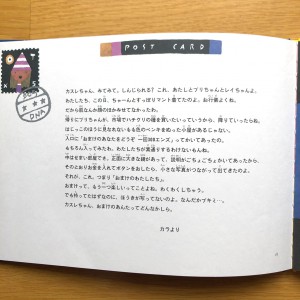 POST CARD
DNA
カスレちゃん、みてみて、しんじられる? これ、あたしとフリちゃんとレイちゃんよ。
わたしたち、この日、ちゃーんとすっぽりマント着てたのよ。お行儀よくね。
だから殿なんか顔のほかみせてなかったわ。
帰りにフリちゃんが、市場でハチクリの種を買いたいっていうから、降りていったら右、
はじっこのほうに見なれないももいろのペンキをぬった小屋があるじゃない。
入口に「おまけのあなたをどうぞ 一回88エンス」ってかいてあったの。
もちろん入ってみたわ。わたしたちが見逃すわけないもんね。
中はせまい部屋で、正面に大きな鏡があって、説明がごちょごちょかいてあったから、
そのとおりお金を入れてボタンをおしたら、小さな写真がつながって出てきたのよ。
それが、これ。つまり「おまけのわたしたち」。
おまけって、もう一つ楽しいってことよね。わくわくしちゃう。
でも持ってたはずなのに、ほうきが写ってないのよ。なんだかブキミ…。
カスレちゃん、おまけのあんたってどんなかしら。
カラより